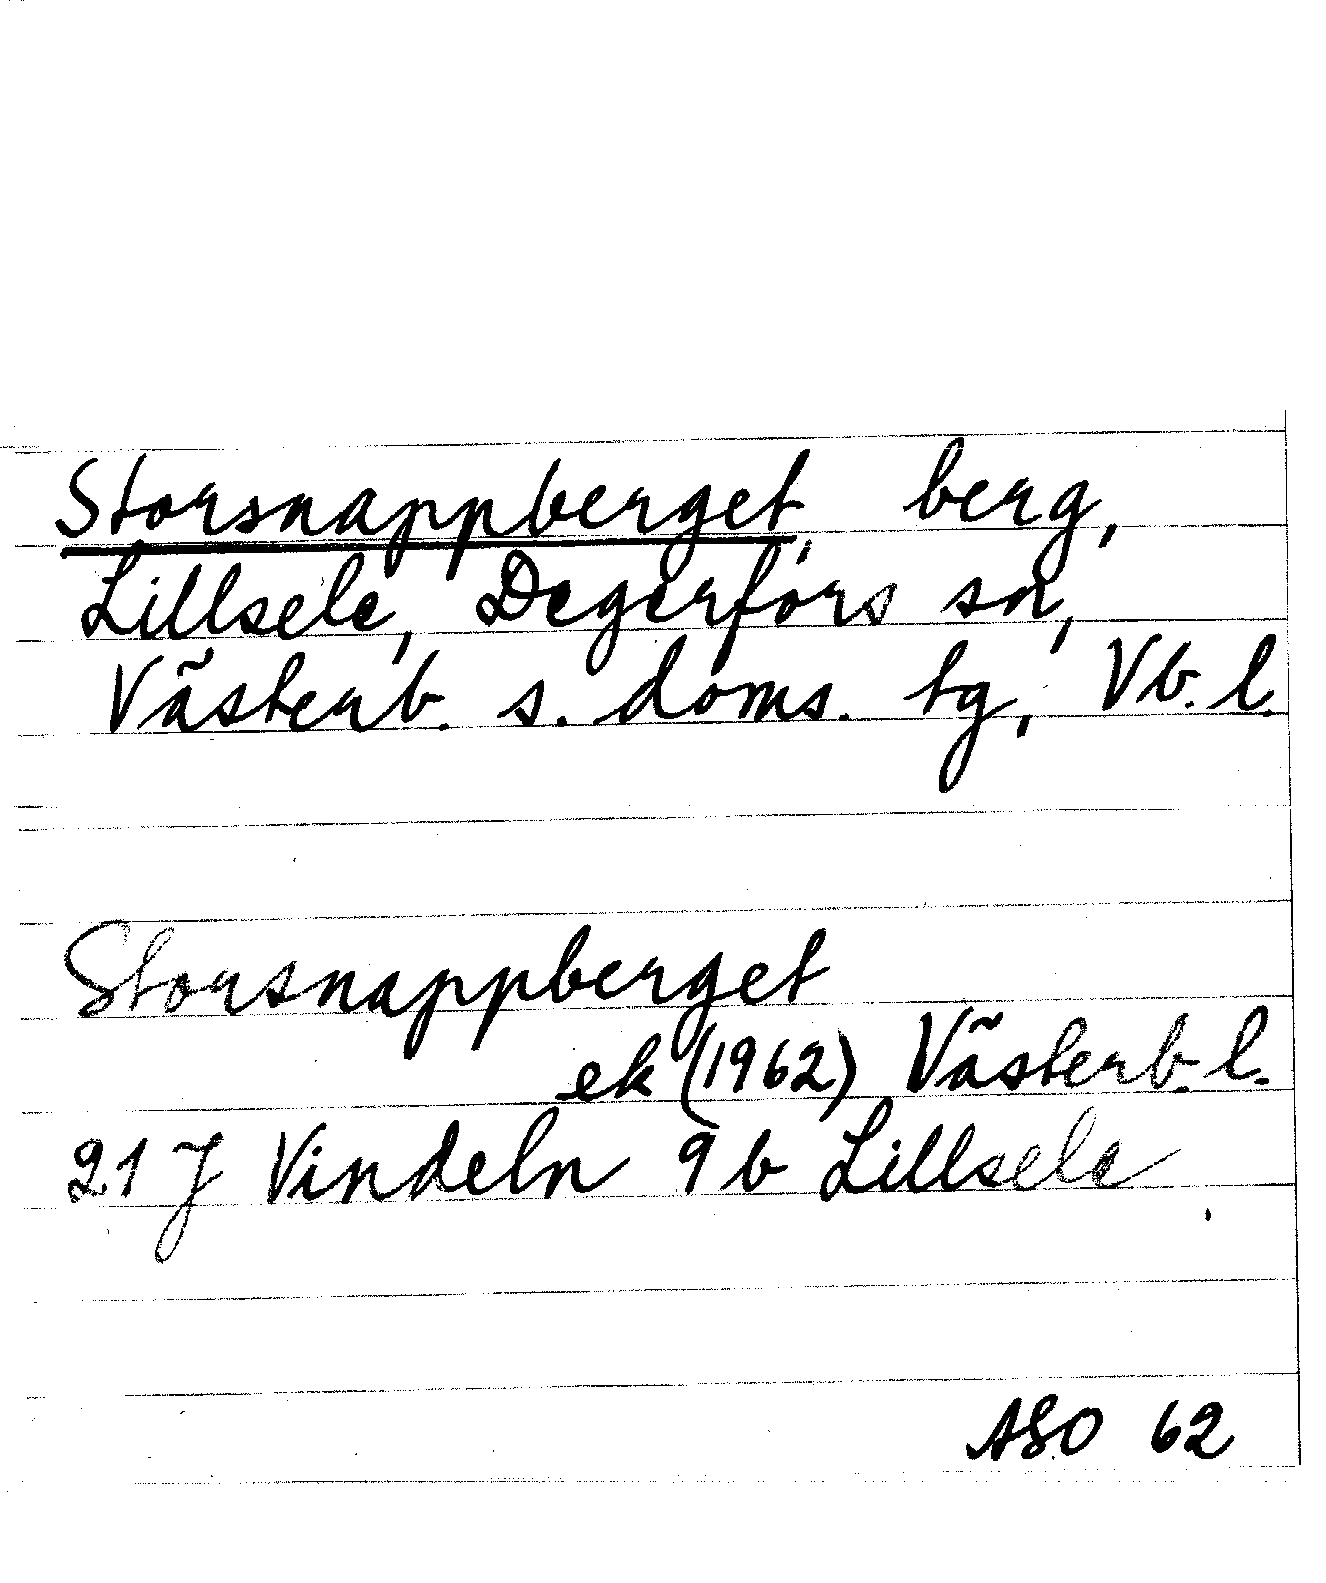 Storsnappberget, berg,
Lillsele, Degerfors sn,
Västerb. s. doms. tg, Vb. l.
Storsnappberget
ek (1962) Västerb. l.
21 J Vindeln 9 b Lillsele
ASO 62